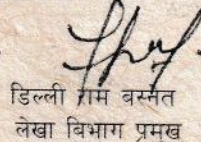 डिल्ली राम बस्नेत
लेखा विभाग प्रमुख